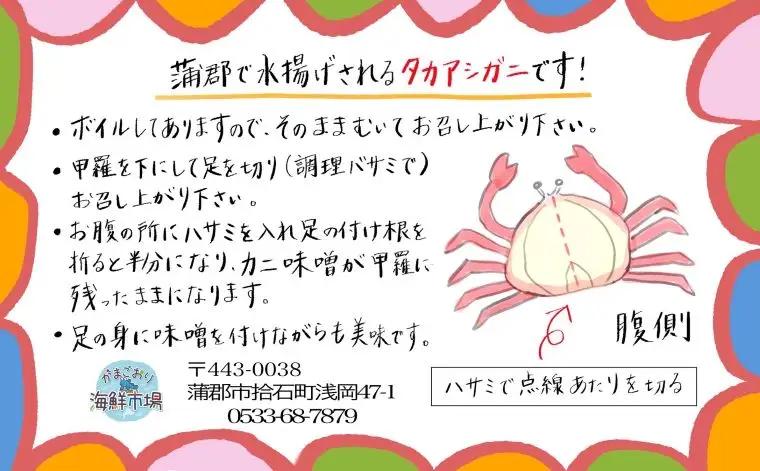 蒲郡で水揚げされるタカアシガニです!
• ボイルしてありますので、そのままむいてお召し上がり下さい。
• 甲羅を下にして足を切り(調理バサミで)
お召し上がり下さい。
• お腹の所にハサミを入れ足の付け根を
折ると半分になり、カニ味噌が甲羅に
残ったままになります。
• 足の身に味噌を付けながらも美味です。
腹側
ハサミで点線あたりを切る
がまごおり
海鮮市場
〒443-0038
蒲郡市拾石町浅岡47-1
0533-68-7879